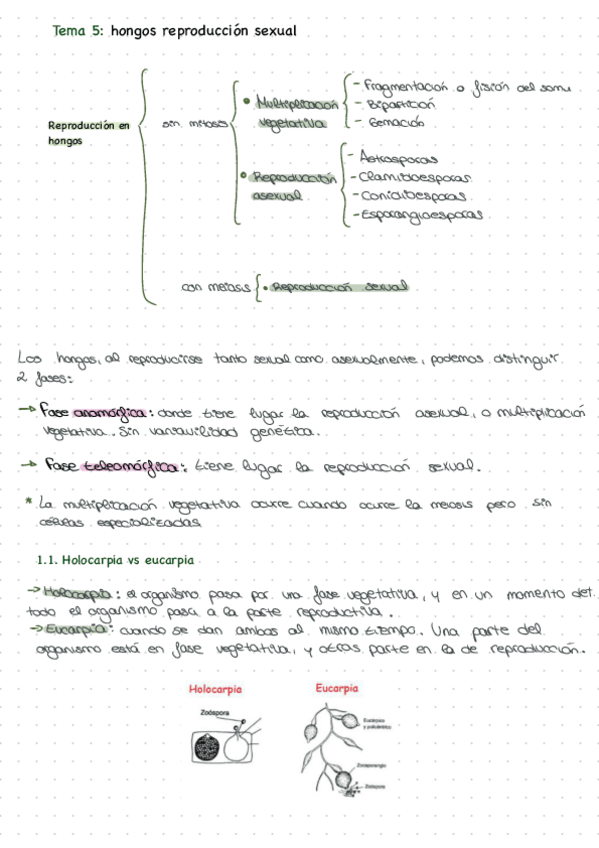 Tema 5: hongos reproducción sexual
Reproducción en
hongos
sin meiosis
• Multiplicación
vegetativa
- Fragmentación o fisión del soma
- Bipartición
- Gemación
• Reproducción
asexual
- Astrosporas
- Clamidoesporas
- Conidioesporas
- Esporangioesporas
con meiosis
• Reproducción sexual
Los hongos, al reproducirse tanto sexual como asexualmente, podemos distinguir
2 fases:
→ Fase anamórfica: donde tiene lugar la reproducción asexual, o multiplicación
vegetativa. Sin variavilidad genética.
→ Fase teleomórfica: tiene lugar la reproducción sexual.
* La multiplicación vegetativa ocurre cuando ocurre la meiosis pero sin
células especializadas
1.1. Holocarpia vs eucarpia
→ Holocarpia: el organismo pasa por una fase vegetativa, y en un momento det.
todo el organismo pasa a la parte reproductiva.
→ Eucarpia: cuando se dan ambas al mismo tiempo. Una parte del
organismo está en fase vegetativa, y otras parte en la de reproducción.
Holocarpia
Eucarpia
Zoóspora
Zoosporangio
Zoóspora